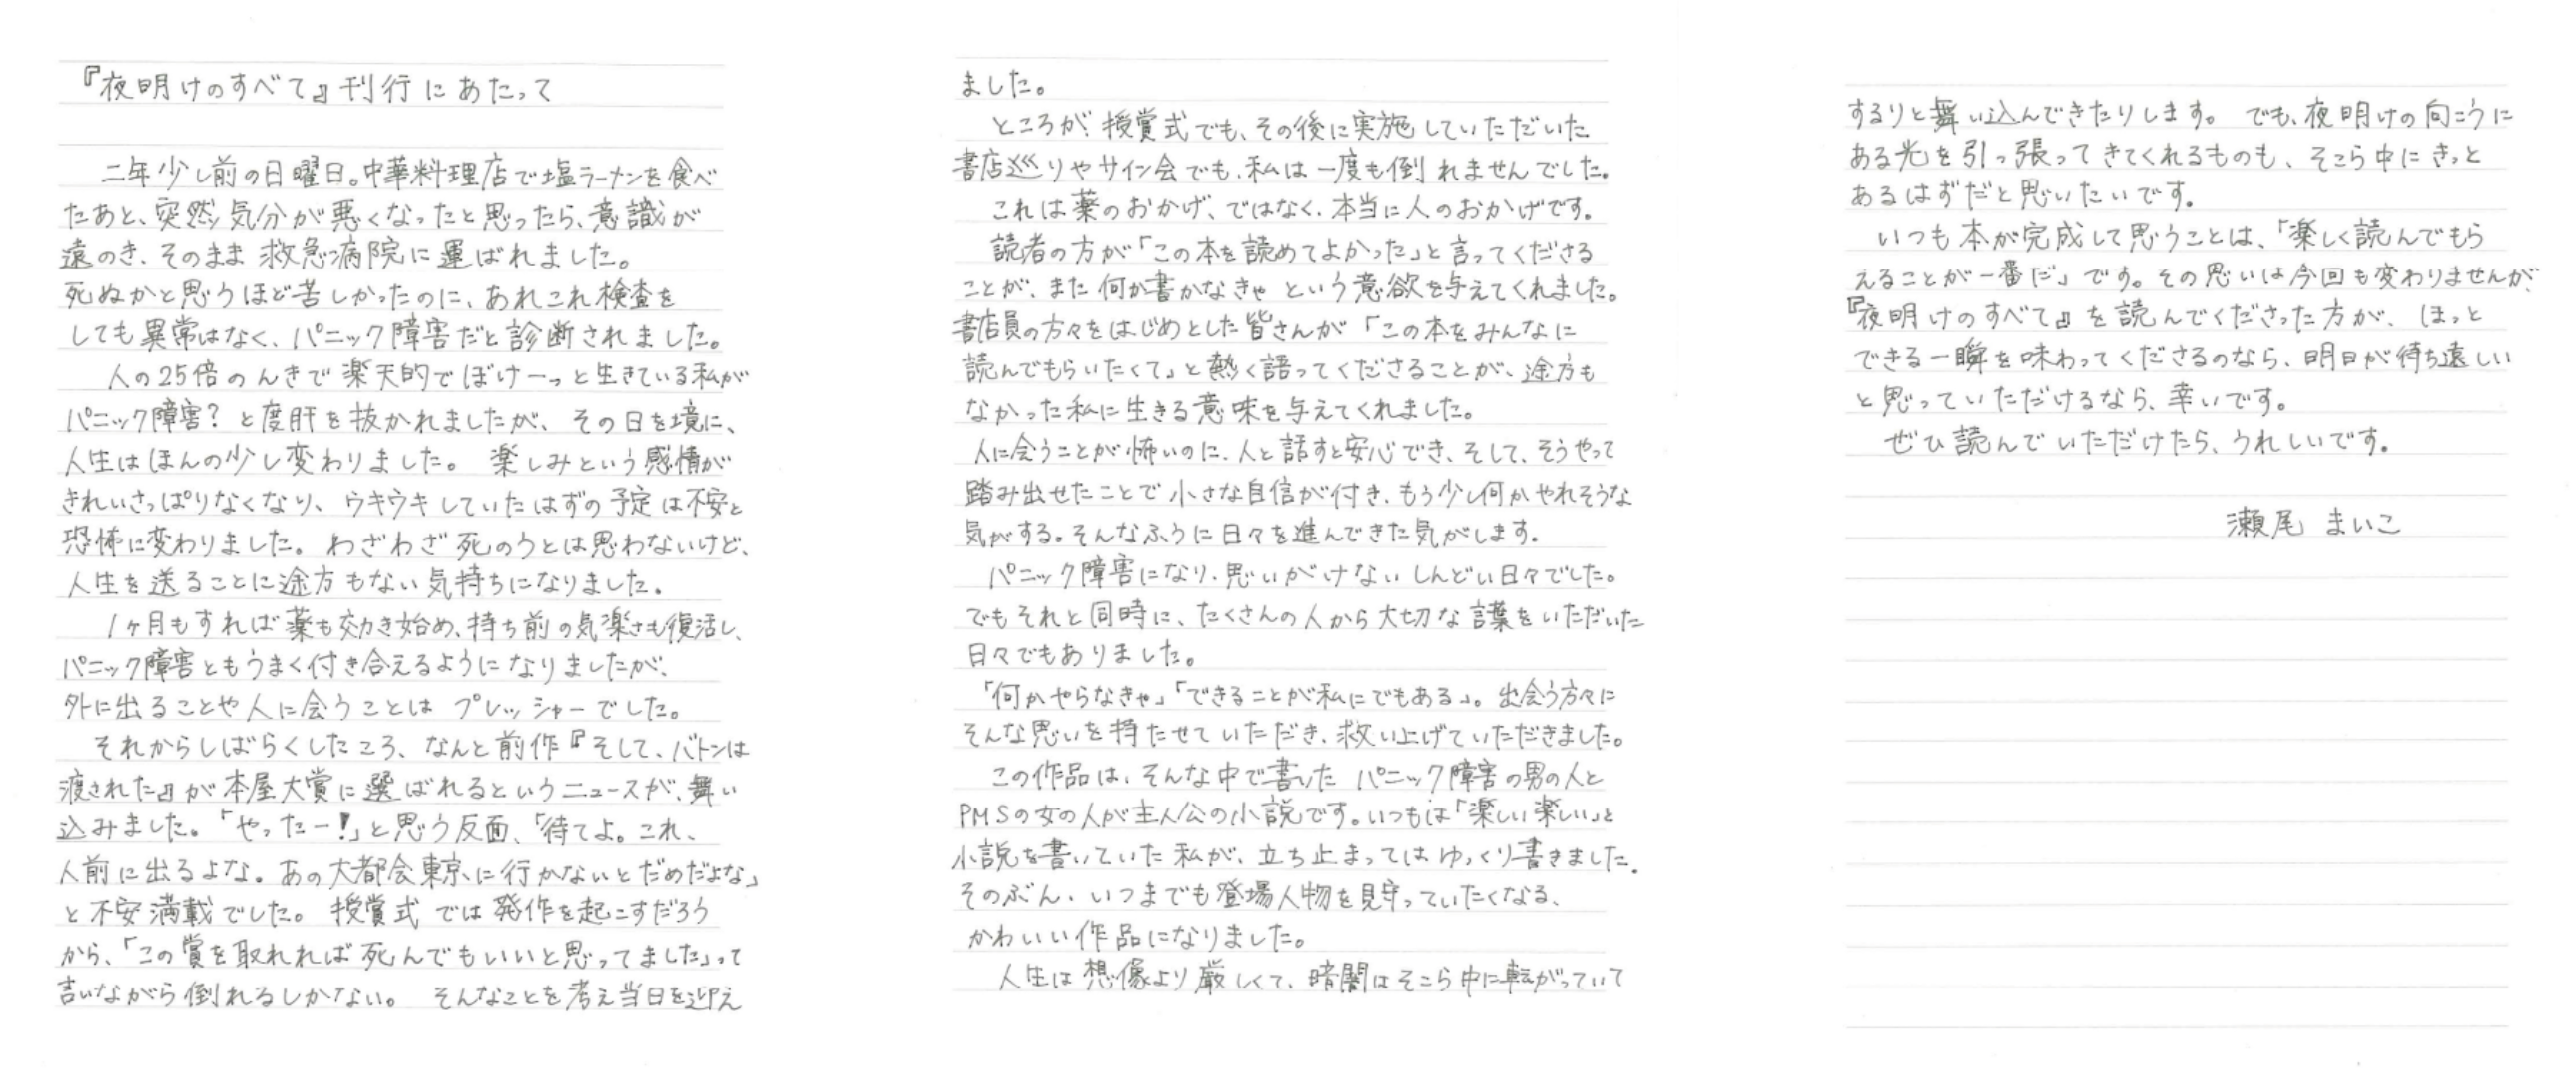 『夜明けのすべて』刊行にあたって
二年少し前の日曜日。中華料理店で塩ラーメンを食べ
たあと、突然気分が悪くなったと思ったら、意識が
遠のき、そのまま救急病院に運ばれました。
死ぬかと思うほど苦しかったのに、あれこれ検査を
しても異常はなく、パニック障害だと診断されました。
人の25倍のんきで楽天的でぼけーっと生きている私が
パニック障害？と度肝を抜かれましたが、その日を境に、
人生はほんの少し変わりました。楽しみという感情が
きれいさっぱりなくなり、ウキウキしていたはずの予定は不安と
恐怖に変わりました。わざわざ死のうとは思わないけど、
人生を送ることに途方もない気持ちになりました。
1ヶ月もすれば薬も効き始め、持ち前の気楽さも復活し、
パニック障害ともうまく付き合えるようになりましたが、
外に出ることや人に会うことはプレッシャーでした。
それからしばらくしたころ、なんと前作『そして、バトンは
渡された』が本屋大賞に選ばれるというニュースが、舞い
込みました。「やったー！」と思う反面、「待てよ。これ、
人前に出るよな。あの大都会東京に行かないとだめだよな」
と不安満載でした。授賞式では発作を起こすだろう
から、「この賞を取れれば死んでもいいと思ってました」って
言いながら倒れるしかない。そんなことを考え当日を迎え
ました。
ところが、授賞式でも、その後に実施していただいた
書店巡りやサイン会でも、私は一度も倒れませんでした。
これは薬のおかげ、ではなく、本当に人のおかげです。
読者の方が「この本を読めてよかった」と言ってくださる
ことが、また何か書かなきゃという意欲を与えてくれました。
書店員の方々をはじめとした皆さんが「この本をみんなに
読んでもらいたくて」と熱く語ってくださることが、途方も
なかった私に生きる意味を与えてくれました。
人に会うことが怖いのに、人と話すと安心でき、そして、そうやって
踏み出せたことで小さな自信が付き、もう少し何かやれそうな
気がする。そんなふうに日々を進んできた気がします。
パニック障害になり、思いがけないしんどい日々でした。
でもそれと同時に、たくさんの人から大切な言葉をいただいた
日々でもありました。
「何かやらなきゃ」「できることが私にでもある」。出会う方々に
そんな思いを持たせていただき、救い上げていただきました。
この作品は、そんな中で書いたパニック障害の男の人と
PMSの女の人が主人公の小説です。いつもは「楽しい楽しい」と
小説を書いていた私が、立ち止まってはゆっくり書きました。
そのぶん、いつまでも登場人物を見守っていたくなる、
かわいい作品になりました。
人生は想像より厳しくて、暗闇はそこら中に転がっていて
するりと舞い込んできたりします。でも、夜明けの向こうに
ある光を引っ張ってきてくれるものも、そこら中にきっと
あるはずだと思いたいです。
いつも本が完成して思うことは、「楽しく読んでもら
えることが一番だ」です。その思いは今回も変わりませんが、
『夜明けのすべて』を読んでくださった方が、ほっと
できる一瞬を味わってくださるのなら、明日が待ち遠しい
と思っていただけるなら、幸いです。
ぜひ読んでいただけたら、うれしいです。
瀬尾まいこ